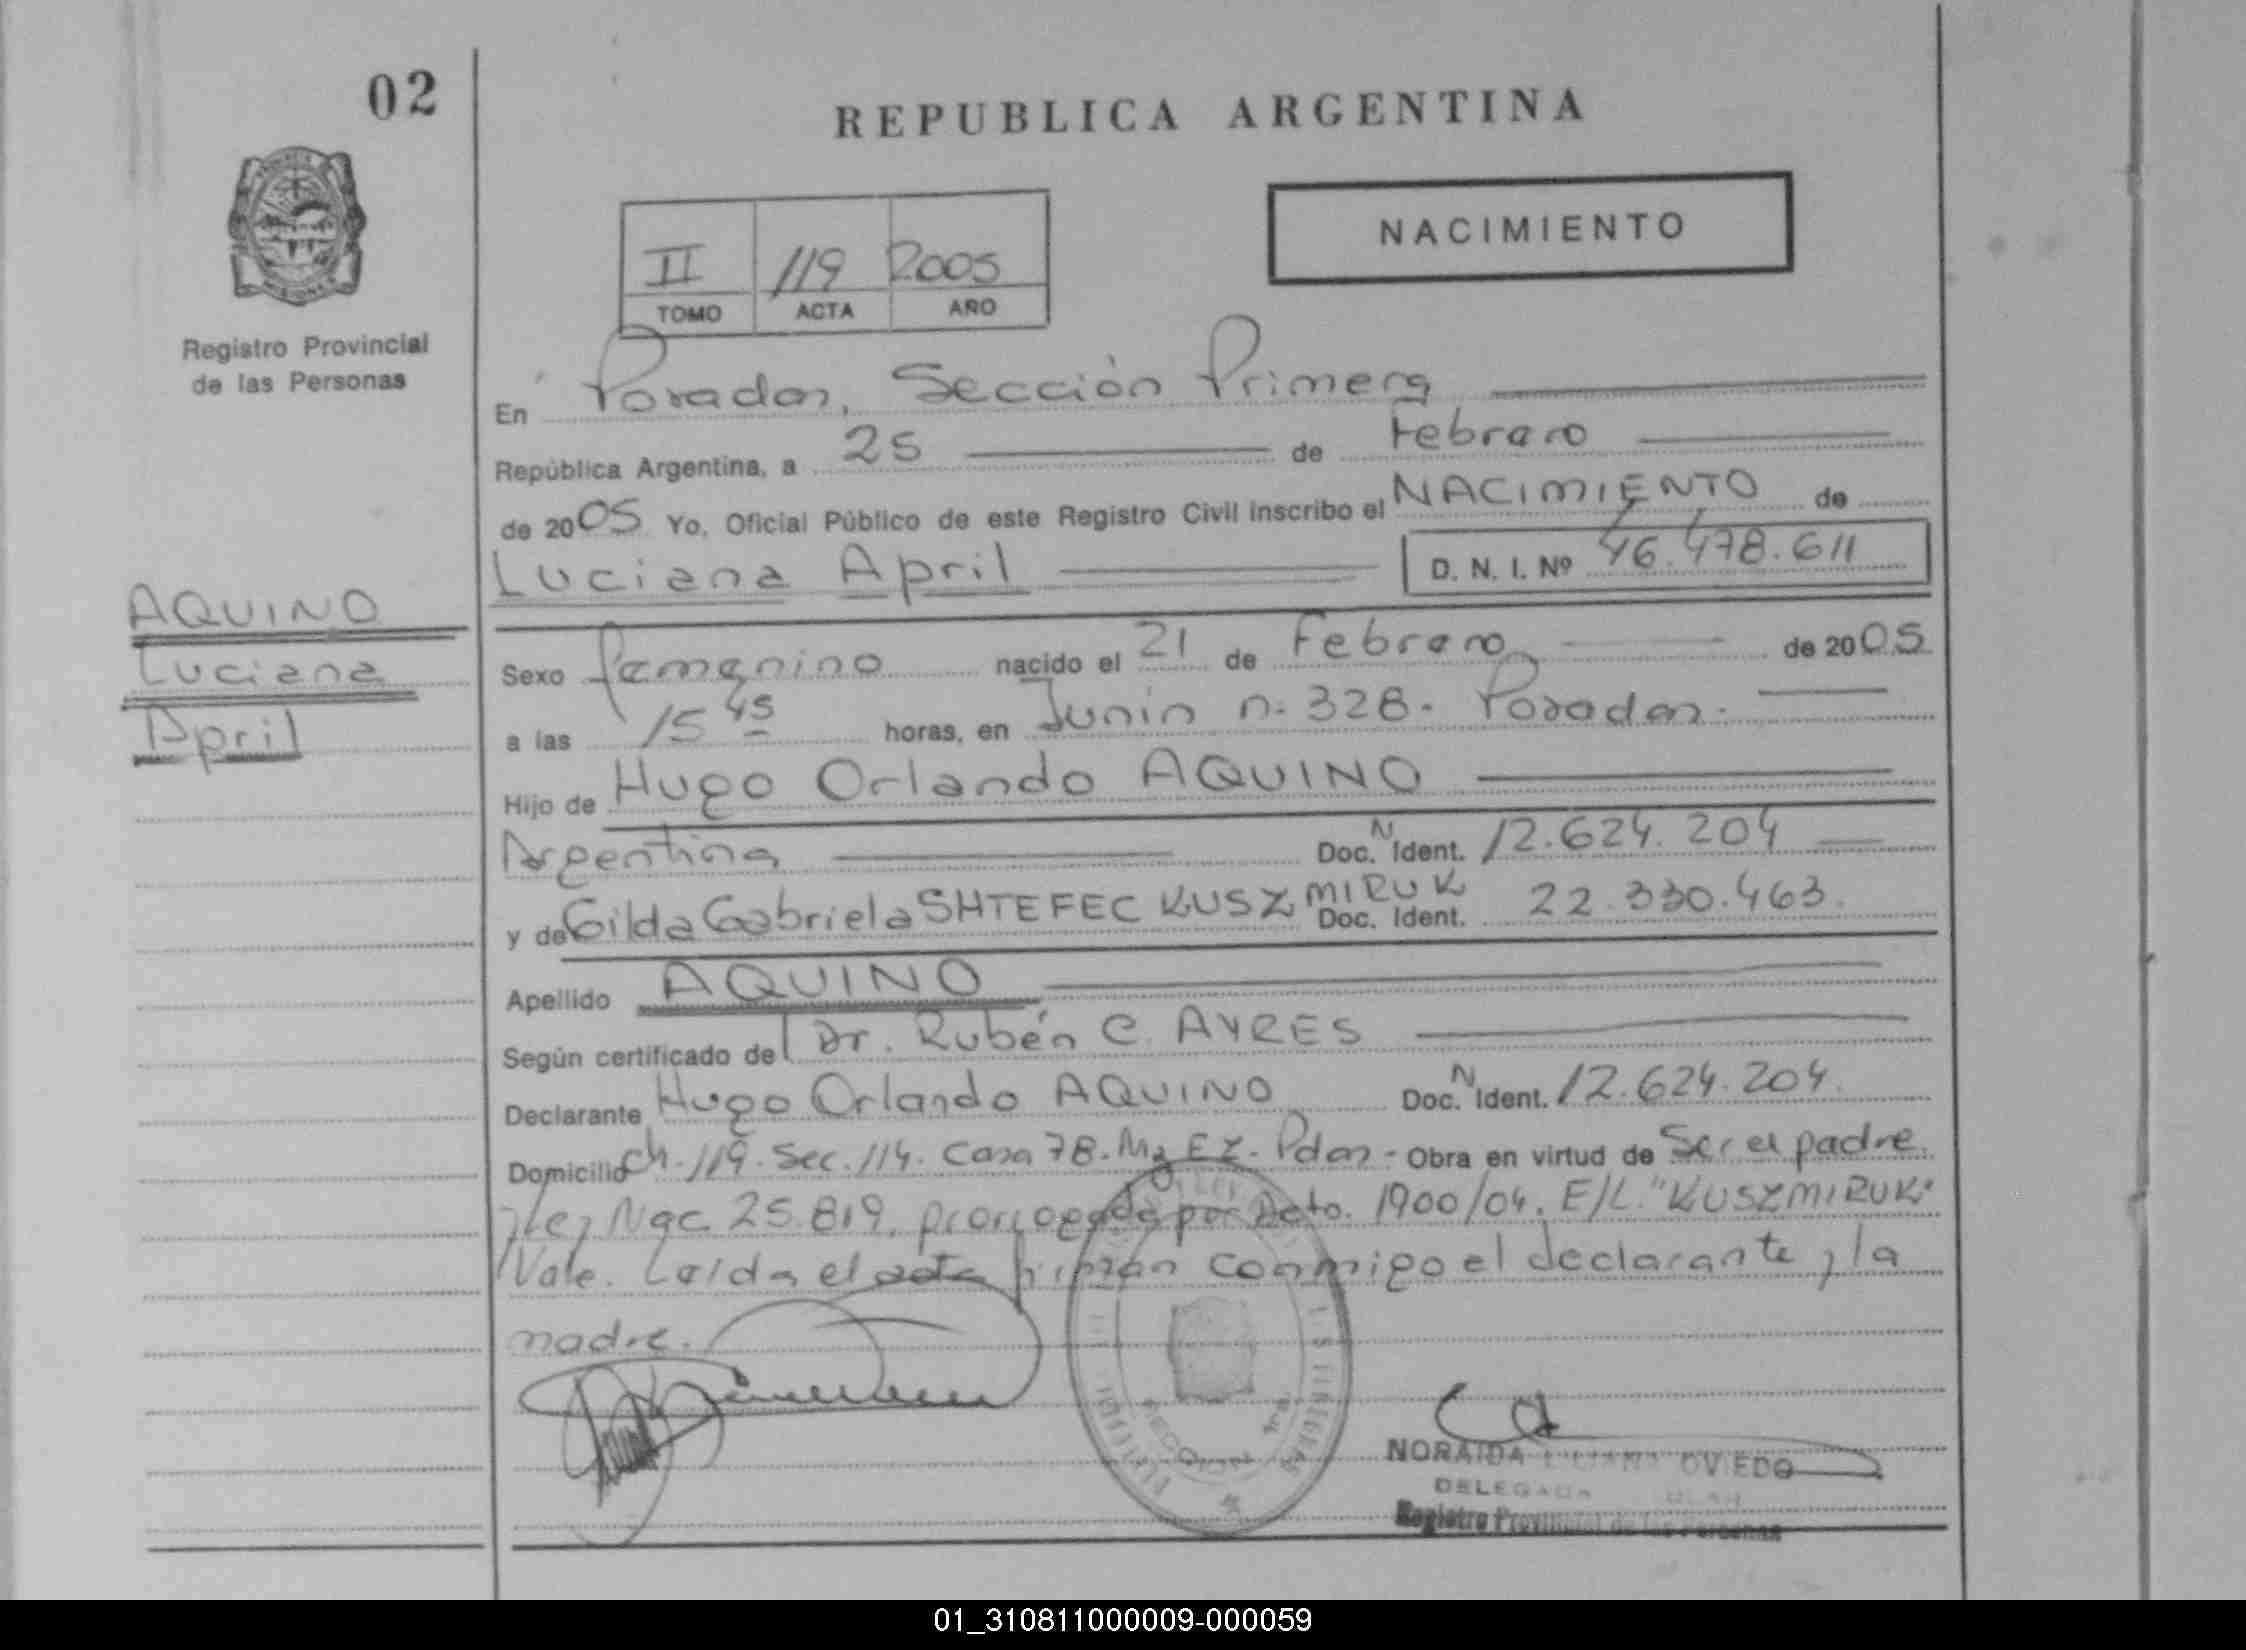 02
REPUBLICA ARGENTINA
NACIMIENTO
II 119 2005
TOMO ACTA AÑO
Registro Provincial
de las Personas
En Posadas, Sección Primera
República Argentina, a 25 de Febrero
de 2005 Yo, Oficial Público de este Registro Civil inscribo el NACIMIENTO de
Luciana April D. N. I. Nº 46.478.611
AQUINO
Luciana
April
Sexo femenino nacido el 21 de Febrero de 2005
a las 15 45 horas, en Junin n: 328. Posadas.
Hijo de Hugo Orlando AQUINO
Argentina Doc. N Ident. 12.624.204
y de Gilda Gabriela SHTEFEC KUSZMIRUK Doc. Ident. 22.330.463.
Apellido AQUINO
Según certificado del Dr. Rubén C. AYRES
Declarante Hugo Orlando AQUINO Doc. N Ident. 12.624.204.
Domicilio Ch. 119. Sec. 114. Casa 78. Mz EZ. Pdas. Obra en virtud de Ser el padre.
y Ley Nac. 25.819, prorrogada por Dcto. 1900/04. E/L. "KUSZMIRUK"
Vale. Leida el acta firman conmigo el declarante y la
madre.
SECCION 1ra
NORAIDA LILIANA OVIEDO
DELEGADA
Registro Provincial de las Personas
01_310811000009-000059